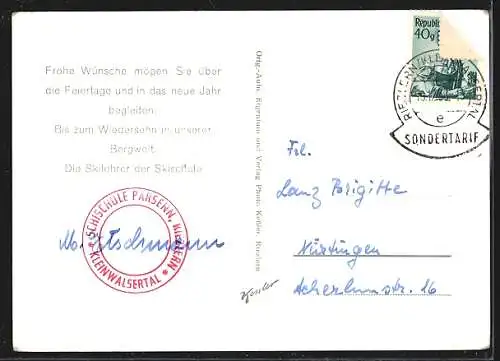 Frohe Wünsche mögen Sie über
die Feiertage und in das neue Jahr
begleiten.
Bis zum Wiedersehn in unserer
Bergwelt.
Die Skilehrer der Skischule
SCHISCHULE PARSENN, RIEZLERN
KLEINWALSERTAL
Orig.-Aufn. Eigentum und Verlag Photo Keßler, Riezlern
Kessler
Republik
40g
RIEZLERN (KLEINWALSERTAL)
e
SONDERTARIF
Frl.
Lanz Brigitte
Nürtingen